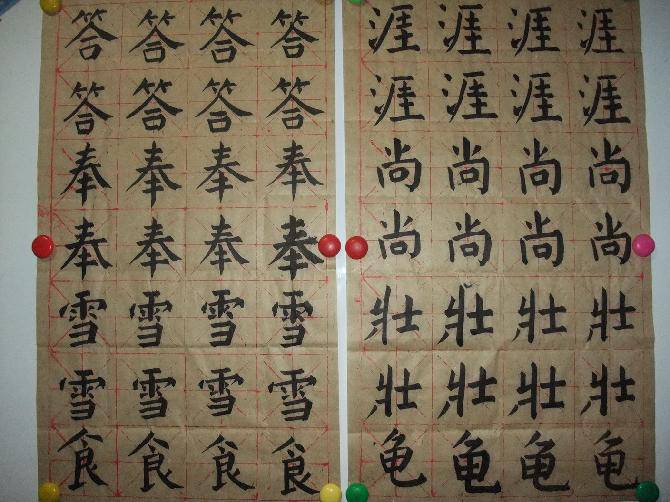 答答答答
答答答答
奉奉奉奉
奉奉奉奉
雪雪雪雪
雪雪雪雪
食食食食
涯涯涯涯
涯涯涯涯
尚尚尚尚
尚尚尚尚
壯壯壯壯
壯壯壯壯
龟龟龟龟